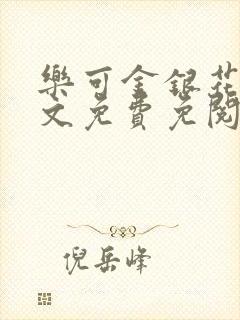 樂可金銀花
文免費免閱
倪岳峰